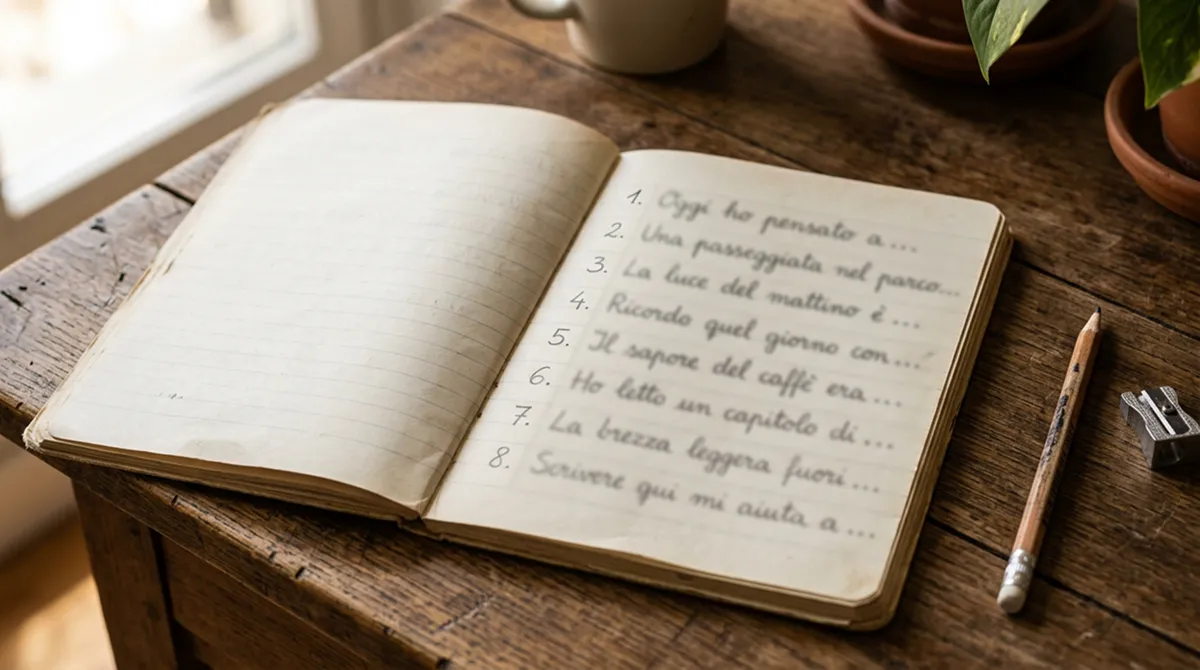 1. Oggi ho pensato a...
2. Una passeggiata nel parco...
3. La luce del mattino è...
4. Ricordo quel giorno con...
5. Il sapore del caffè era...
6. Ho letto un capitolo di...
7. La brezza leggera fuori...
8. Scrivere qui mi aiuta a...